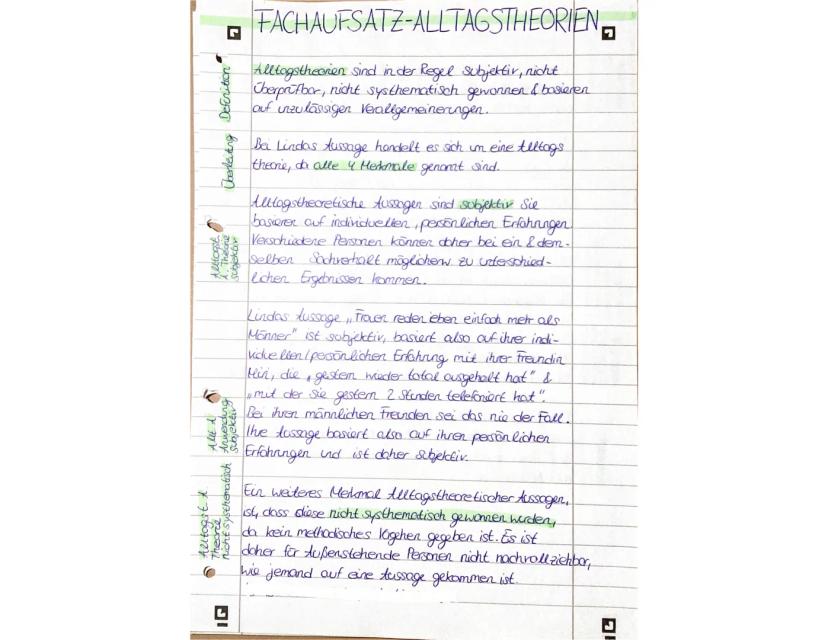 FACHAUFSATZ-ALLTAGSTHEORIEN
Definition
Alltagstheorien sind in der Regel subjektiv, nicht
Überprüfbar, nicht systhematisch gewonnen & basieren
auf unzulässigen Verallgemeinerungen.
Überleitung
Bei Lindas Aussage handelt es sich um eine Alltags
theorie, da alle 4 Merkmale genannt sind.
Alltagst.
1. Theorie
subjektiv
Alltagstheoretische Aussagen sind subjektiv Sie
basieren auf individuellen, persönlichen Erfahrungen
Verschiedene Personen können daher bei ein & dem-
selben Sachverhalt möglicherw zu unterschied-
lichen Ergebnissen kommen.
Lindas Aussage „Frauen reden eben einfach mehr als
Männer" ist subjektiv, basiert also auf ihrer indi-
viduellen/persönlichen Erfahrung mit ihrer Freundin
die „gestern wieder total ausgeholt hat" &
„mit der sie gestern 2 Stunden telefoniert hat".
Bei ihren männlichen Freunden sei das nie der Fall.
Ihre Aussage basiert also auf ihren persönlichen
Erfahrungen und ist daher subjektiv.
Anwendung
subjektiv
Ein weiteres Merkmal Alltagstheoretischer Aussagen,
ist, dass diese nicht systhematisch gewonnen wurden,
da kein methodisches Vogehen gegeben ist. Es ist
daher für Außenstehende Personen nicht nachvollziehbar,
wie jemand auf eine Aussage gekommen ist.
Alltagst.
Theorie
nicht systhematisch